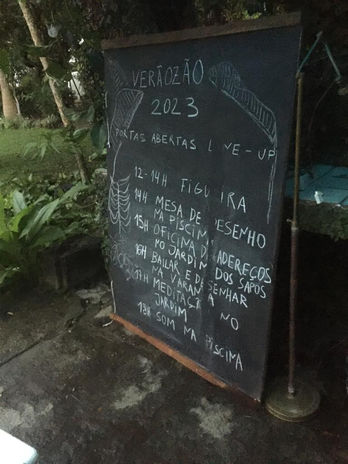 VERÃOZÃO
2023
PORTAS ABERTAS LINE-UP
12-14H FIGUEIRA
14H MESA DE DESENHO
NA PISCINA
15H OFICINA DE ADEREÇOS
NO JARDIM DOS SAPOS
16H BAILAR E DESENHAR
NA VARANDA
17H MEDITAÇÃO NO
JARDIM
18H SOM NA PISCINA